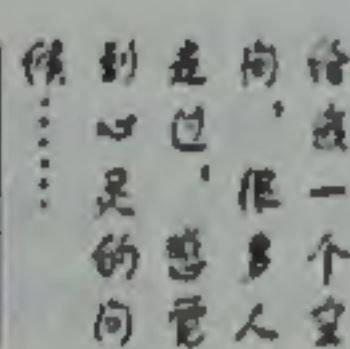 给我一个空
间，很多人
走过，感觉
到心足的问
候……